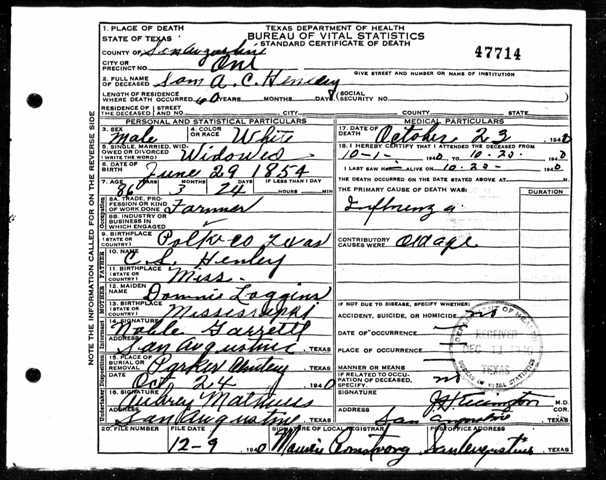 TEXAS DEPARTMENT OF HEALTH
BUREAU OF VITAL STATISTICS
STANDARD CERTIFICATE OF DEATH
47714
1. PLACE OF DEATH
STATE OF TEXAS
COUNTY OF San Augustine
CITY OR PRECINCT NO. One
GIVE STREET AND NUMBER OR NAME OF INSTITUTION
2. FULL NAME OF DECEASED Sam A. C. Henley
LENGTH OF RESIDENCE WHERE DEATH OCCURRED 60 YEARS MONTHS DAYS SOCIAL SECURITY NO.
RESIDENCE OF THE DECEASED STREET AND NO. CITY COUNTY STATE
PERSONAL AND STATISTICAL PARTICULARS
3. SEX Male
4. COLOR OR RACE White
5. SINGLE, MARRIED, WIDOWED OR DIVORCED (WRITE THE WORD) Widowed
6. DATE OF BIRTH June 29 1854
7. AGE 86 3 24 IF LESS THAN 1 DAY HOURS MIN
8A. TRADE, PROFESSION OR KIND OF WORK DONE Farmer
8B. INDUSTRY OR BUSINESS IN WHICH ENGAGED
9. BIRTHPLACE (STATE OR COUNTRY) Polk co Texas
10. NAME C. S. Henley
11. BIRTHPLACE (STATE OR COUNTRY) Miss.
12. MAIDEN NAME Loggins
13. BIRTHPLACE (STATE OR COUNTRY) Mississippi
14. SIGNATURE Noble Garrett
San Augustine, TEXAS
15. PLACE OF BURIAL OR REMOVAL Parker
Oct 24 1940
16. SIGNATURE Aubrey Mathews
San Augustine, TEXAS
MEDICAL PARTICULARS
17. DATE OF DEATH October 23 1940
18. I HEREBY CERTIFY THAT I ATTENDED THE DECEASED FROM
10-1- 1940 TO 10-20- 1940
I LAST SAW ALIVE ON 10-20- 1940
THE DEATH OCCURRED ON THE DATE STATED ABOVE AT M.
THE PRIMARY CAUSE OF DEATH WAS: DURATION
Influenza
CONTRIBUTORY CAUSES WERE: Old age
IF NOT DUE TO DISEASE, SPECIFY WHETHER:
ACCIDENT, SUICIDE, OR HOMICIDE no
DATE OF OCCURRENCE
PLACE OF OCCURRENCE
MANNER OR MEANS
IF RELATED TO OCCUPATION OF DECEASED, SPECIFY no
SIGNATURE M.D. COR.
ADDRESS San Augustine TEXAS
RECEIVED
DEC 11
TEXAS
BUREAU OF VITAL STATISTICS
20. FILE NUMBER FILE DATE SIGNATURE OF LOCAL REGISTRAR POSTOFFICE ADDRESS
12-9 1940 Armstrong San Augustine, TEXAS
NOTE THE INFORMATION CALLED FOR ON THE REVERSE SIDE